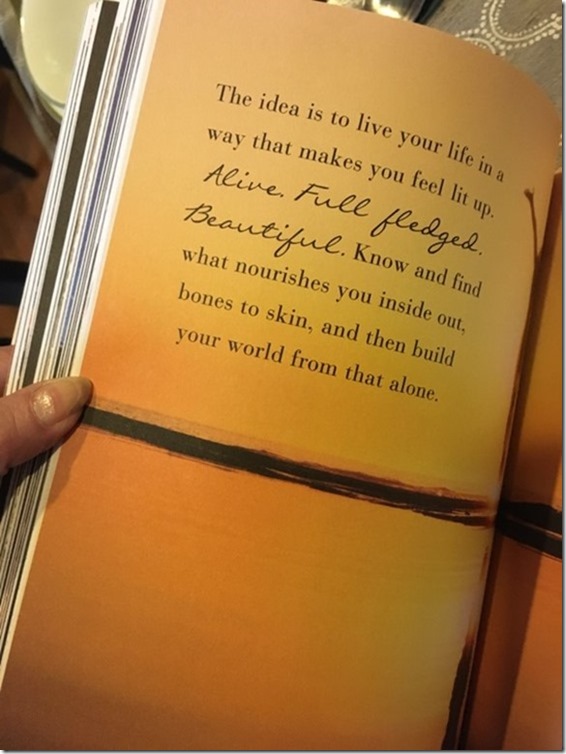 The idea is to live your life in a
way that makes you feel lit up.
Alive. Full fledged.
Beautiful. Know and find
what nourishes you inside out,
bones to skin, and then build
your world from that alone.